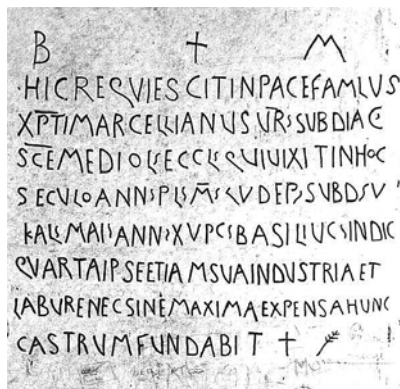 B + M
·HICREQVIESCITINPACEFAMLVS
XPTIMARCELLIANUS VRSSUBDIAC
SCEMEDIOLSECCLSQVIVIXITINHOC
SECVLOANNSPLSMSQVDEPSSUBDSV
KALSMAISANNSXVPCSBASILIVCSINDIC
QVARTAIPSEETIAMSVAINDUSTRIAET
LABURENECSINEMAXIMAEXPENSAHUNC
CASTRUMFUNDABIT +